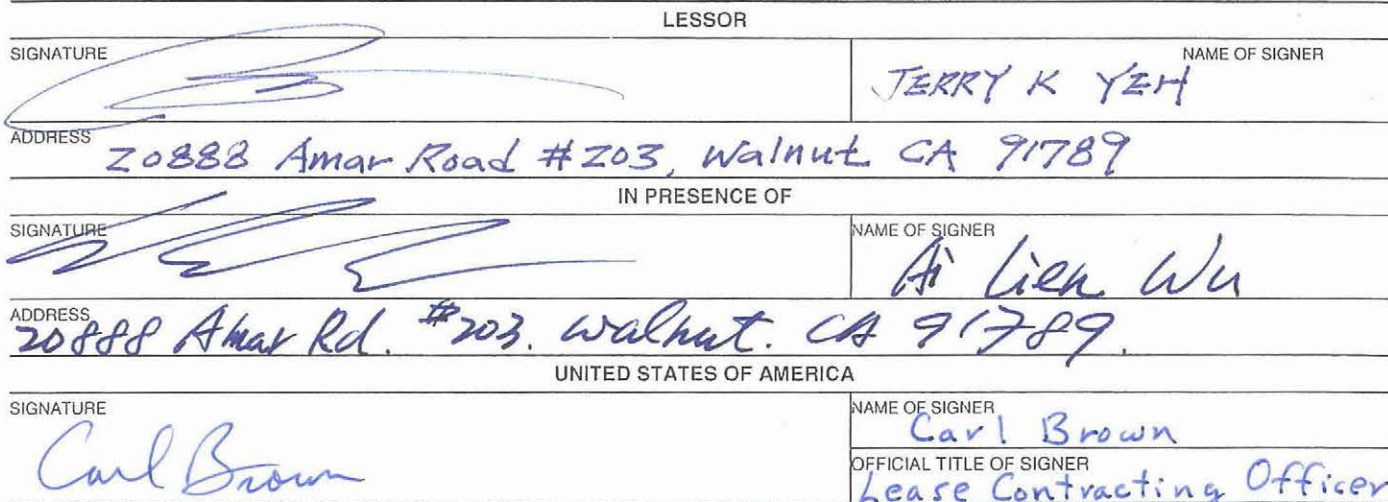 LESSOR
SIGNATURE
NAME OF SIGNER
JERRY K YEH
ADDRESS
20888 Amar Road #203, Walnut CA 91789
IN PRESENCE OF
SIGNATURE
NAME OF SIGNER
Ai Lien Wu
ADDRESS
20888 Amar Rd. #203. Walnut. CA 91789.
UNITED STATES OF AMERICA
SIGNATURE
Carl Brown
NAME OF SIGNER
Carl Brown
OFFICIAL TITLE OF SIGNER
Lease Contracting Officer